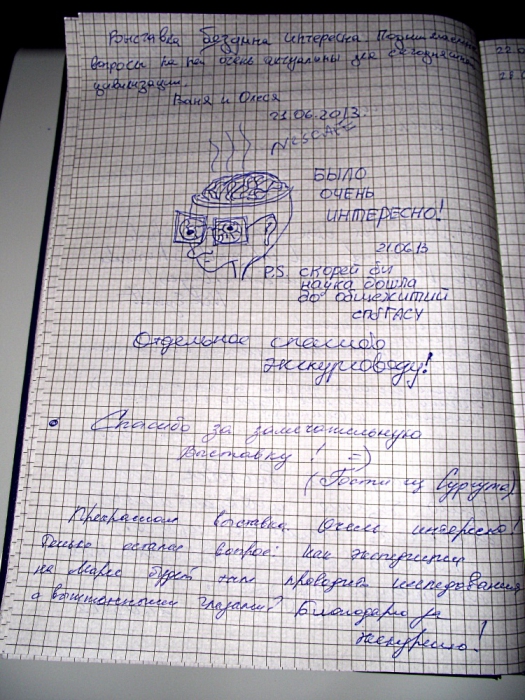 Выставка бездума интересна Поднимаемые
вопросы на ней очень актуальны для сегодняшней
цивилизации.
Ваня и Олеся
21.06.2013.
NESCAFE
БЫЛО
ОЧЕНЬ
ИНТЕРЕСНО!
21.06.13
P.S. скорей бы
наука дошла
до общежитий
СПбГАСУ
Отдельное спасибо
экскурсоводу!
Спасибо за замечательную
выставку! =)
(Гости из Сургута)
Прекрасная выставка. Очень интересно!
Только остался вопрос: как экспедиция
на Марсе будет там проводить исследования
с глазами? Благодарю за
экскурсию!
22.0